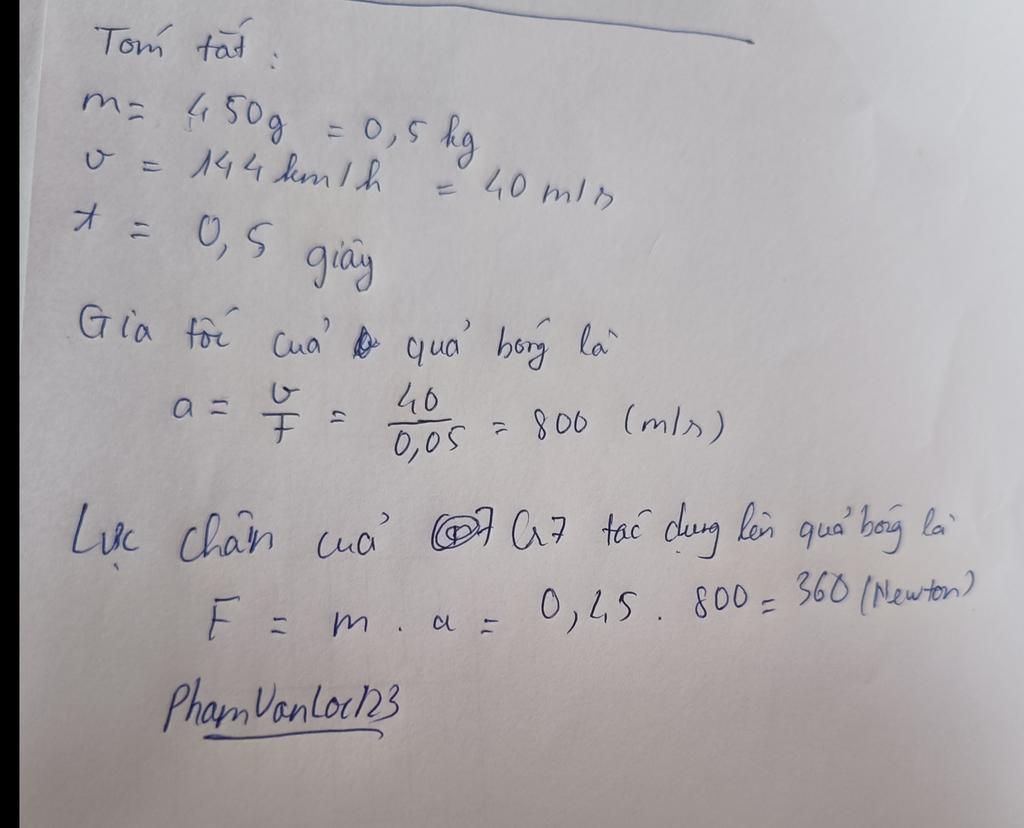 Tóm tắt :
m = 450g = 0,5 kg
v = 144 km/h = 40 m/s
t = 0,5 giây
Gia tốc của quả bóng là
a = v/t = 40/0,05 = 800 (m/s)
Lực chân của G7 tác dụng lên quả bóng là
F = m . a = 0,45 . 800 = 360 (Newton)
PhamVanLoc123